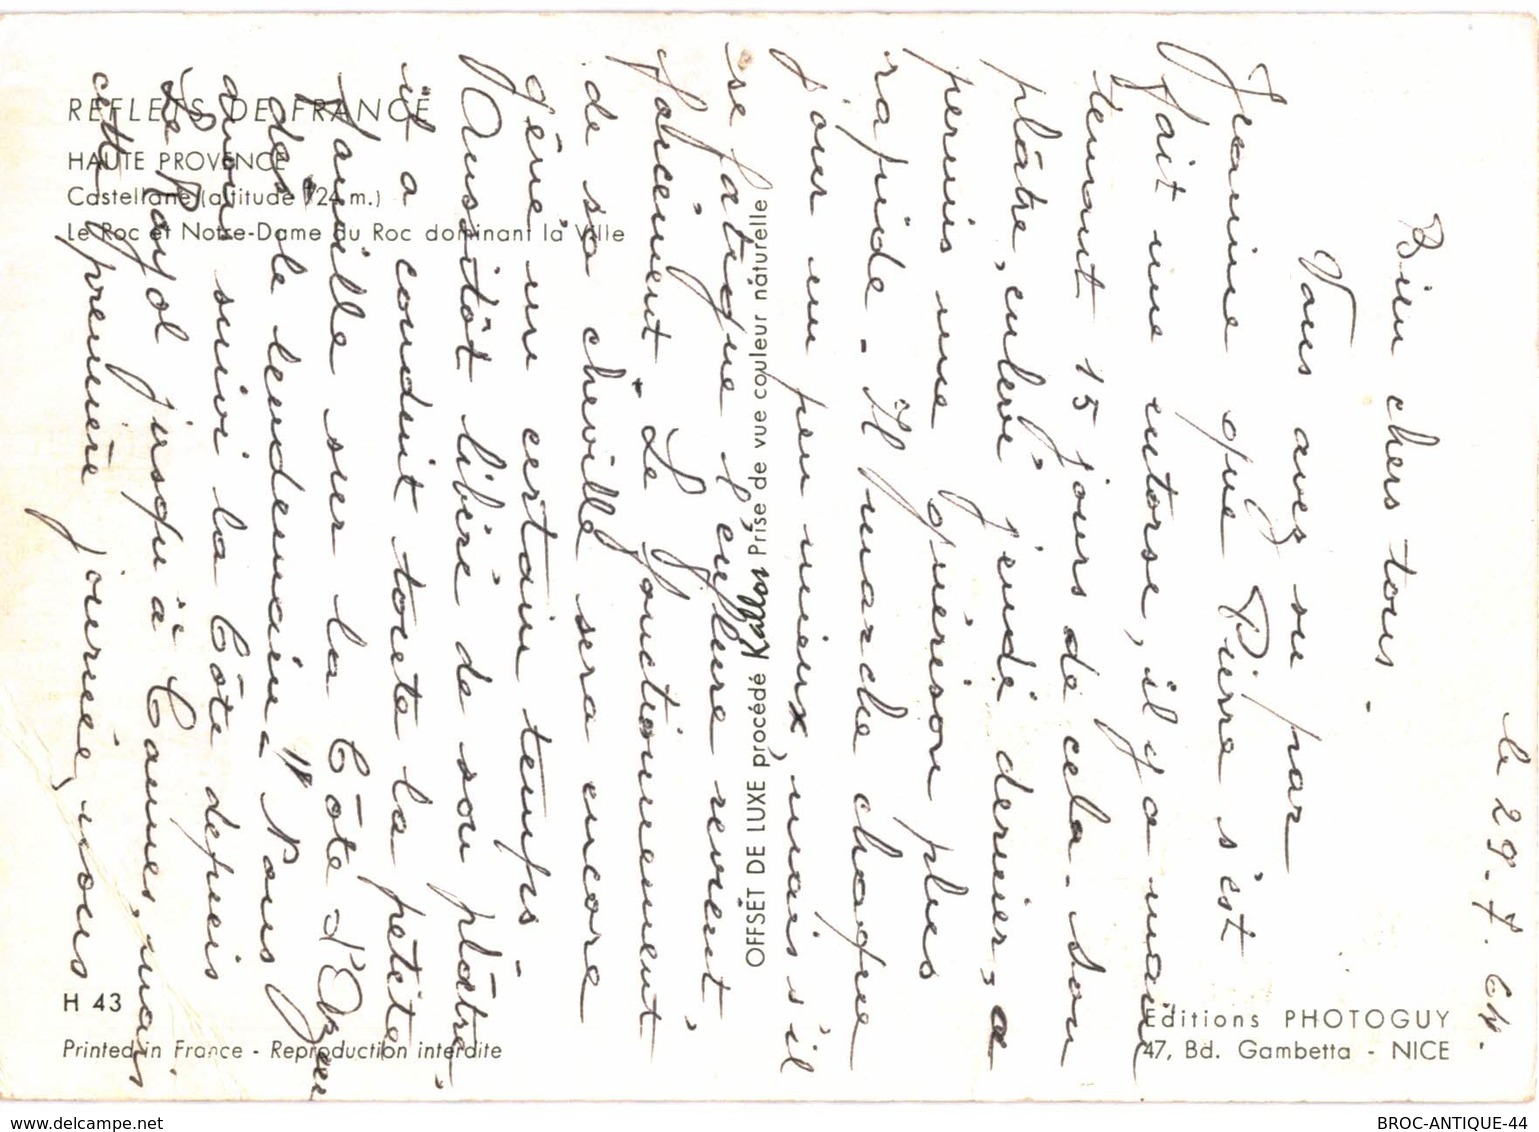 REFLETS DE FRANCE
HAUTE PROVENCE
Castellane (altitude 724 m.)
Le Roc et Notre-Dame du Roc dominant la Ville
OFFSET DE LUXE procédé Kallos Prise de vue couleur naturelle
H 43
Printed in France - Reproduction interdite
Editions PHOTOGUY
47, Bd. Gambetta - NICE
le 29.7.64.
Bien chers tous -
Vous avez su par
Jeannine que Pierre s'est
fait une entorse, il y a main
tenant 15 jours de cela. Son
plâtre, enlevé jeudi dernier, a
permis une guérison plus
rapide. Il marche chaque
jour un peu mieux, mais s'il
se fatigue l'enflure revient,
forcément. Le fonctionnement
de sa cheville sera encore
gêné un certain temps.
Aussitôt libéré de son plâtre
il a conduit toute la petite
famille sur la Côte d'Azur
dès le lendemain. Nous
avons suivi la Côte depuis
Le Rayol jusqu'à Cannes, mais
cette première journée, nous
www.delcampe.net
BROC-ANTIQUE-44